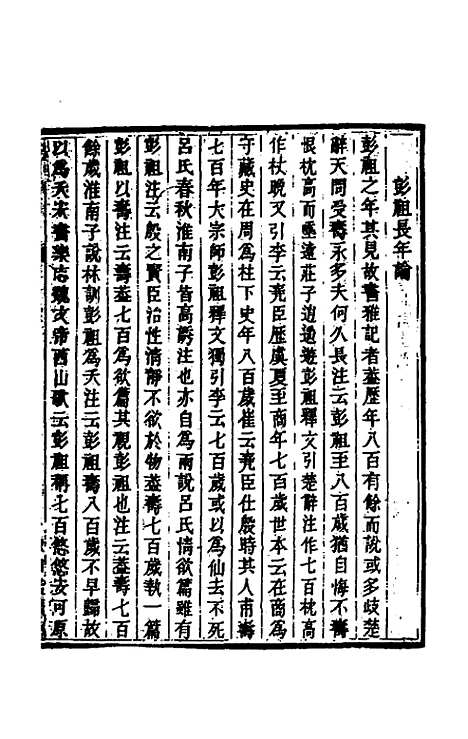 彭祖長年論
彭祖之年其見故書雅記者蓋歷年八百有餘而說或多歧楚
辭天問受壽永多夫何久長注云彭祖至八百歲猶自悔不壽
恨枕高而唾遠莊子逍遙遊彭祖釋文引楚辭注作七百枕高
作杖晚又引李云堯臣歷虞夏至商年七百歲世本云在商為
守藏史在周為柱下史年八百歲崔云堯臣仕殷時其人甫壽
七百年大宗師彭祖釋文獨引李云七百歲或以為仙去不死
呂氏春秋淮南子皆高誘注也亦自為兩說呂氏情欲篇雖有
彭祖注云殷之賢臣治性清靜不欲於物蓋壽七百歲執一篇
彭祖以壽注云蓋壽七百為欲篇其視彭祖也注云蓋壽七百
餘歲淮南子說林訓彭祖為夭注云彭祖壽八百歲不早歸故
以為夭宋書樂志魏文帝西山歌云彭祖稱七百悠悠安可原